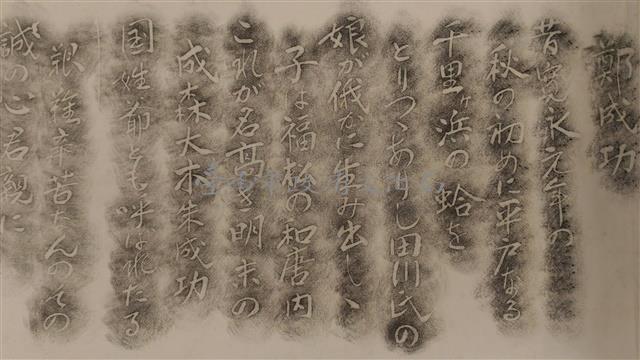 鄭成功
昔寛永元年の
秋の初めに平戸なる
千里ヶ浜の蛤を
とりつゝありし田川氏の
娘が俄かに産み出しゝ
子は福松の和唐内
これが名高き明末の
成森大木朱成功
国姓爺とも呼はれたる
艱難辛苦たんのその
誠の心君親に